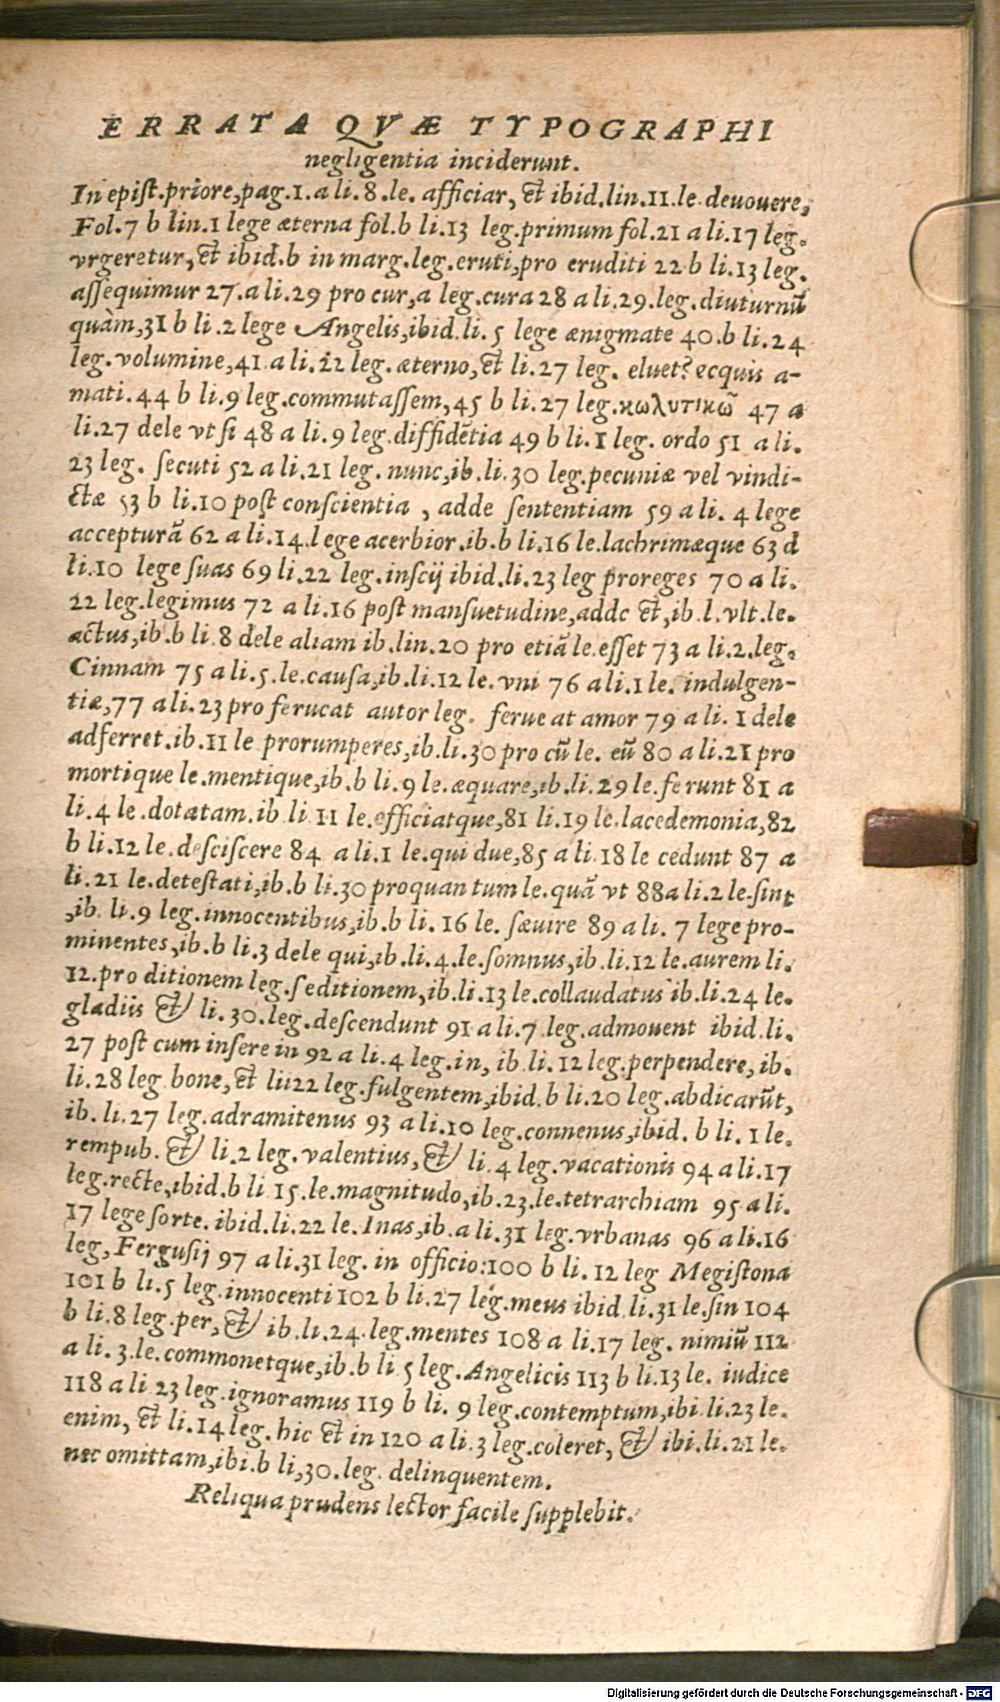 ERRATA QVÆ TYPOGRAPHI
negligentia inciderunt.
In epiſt.priore,pag.1.a li.8.le. afficiar, et ibid.lin.11.le deuouere,
Fol.7 b lin.1 lege æterna fol.b li.13 leg.primum fol.21 a li.17 leg.
vrgeretur, et ibid.b in marg.leg.eruti,pro eruditi 22 b li.13 leg.
aſſequimur 27.a li.29 pro cur,a leg.cura 28 a li.29.leg.diuturnũ
quàm,31 b li.2 lege Angelis,ibid.li.5 lege ænigmate 40.b li.24
leg.volumine,41.a li.22 leg.æterno,et li.27 leg. eluet? ecquis a-
mati.44 b li.9 leg.commutaſſem,45 b li.27 leg.κωλυτικῶ 47 a
li.27 dele vt ſi 48 a li.9 leg.diffidẽtia 49 b li.1 leg. ordo 51 a li.
23 leg. ſecuti 52 a li.21 leg. nunc,ib.li.30 leg.pecuniæ vel vindi-
ctæ 53 b li.10 poſt conſcientia , adde ſententiam 59 a li. 4 lege
accepturã 62 a li.14.lege acerbior.ib.b li.16 le.lachrimæque 63 d
li.10 lege ſuas 69 li.22 leg.inſcij ibid.li.23 leg proreges 70 a li.
22 leg.legimus 72 a li.16 poſt manſuetudine,addc et,ib.l.vlt.le.
actus,ib.b li.8 dele aliam ib.lin.20 pro etiã le.eſſet 73 a li.2.leg.
Cinnam 75 a li.5.le.cauſa,ib.li.12 le.vni 76 a li.1 le. indulgen-
tiæ,77 a li.23 pro ferucat autor leg. ferueat amor 79 a li. 1 dele
adferret.ib.11 le prorumperes,ib.li.30 pro cũ le. eũ 80 a li.21 pro
mortique le.mentique,ib.b li.9 le.æquare,ib.li.29 le.ferunt 81 a
li.4 le.dotatam.ib li 11 le.efficiatque,81 li.19 le.lacedemonia,82
b li.12 le.deſciſcere 84 a li.1 le.qui due,85 a li.18 le cedunt 87 a
li.21 le.deteſtati,ib.b li.30 proquantum le.quã vt 88a li.2 le.ſint
,ib. li.9 leg.innocentibus,ib.b li. 16 le. ſæuire 89 a li. 7 lege pro-
minentes,ib.b li.3 dele qui,ib.li.4.le.ſomnus,ib.li.12 le.aurem li.
12.pro ditionem leg.ſeditionem,ib.li.13 le.collaudatus ib.li.24 le.
gladiis et li.30.leg.deſcendunt 91 a li.7 leg.admouent ibid.li.
27 poſt cum inſere in 92 a li.4 leg.in, ib li.12 leg.perpendere, ib.
li.28 leg bone,et lii22 leg.fulgentem,ibid.b li.20 leg.abdicarũt,
ib.li.27 leg.adramitenus 93 a li.10 leg.connenus,ibid. b li. 1 le.
rempub. et li.2 leg.valentius, et li.4 leg.vacationis 94 a li.17
leg.recte,ibid.b li 15.le.magnitudo,ib.23.le.tetrarchiam 95 a li.
17 lege ſorte. ibid.li.22 le.Inas,ib.a li.31 leg.vrbanas 96 a li.16
leg,Ferguſij 97 a li.31 leg. in officio:100 b li.12 leg Megiſtona
101 b li.5 leg.innocenti 102 b li.27 leg.meus ibid li.31 le.ſin 104
b li.8 leg.per,et ib.li.24.leg.mentes 108 a li.17 leg. nimiũ 112
a li. 3.le.commonetque,ib.b li 5 leg.Angelicis 113 b li.13 le. iudice
118 a li 23 leg.ignoramus 119 b li. 9 leg.contemptum,ibi li.23 le.
enim, et li.14 leg. hic et in 120 a li.3 leg.coleret, et ibi.li.21 le.
nec omittam,ibi.b li,30.leg. delinquentem.
Reliqua prudens lector facile ſupplebit.
Digitalisierung gefördert durch die Deutsche Forschungsgemeinschaft - DFG